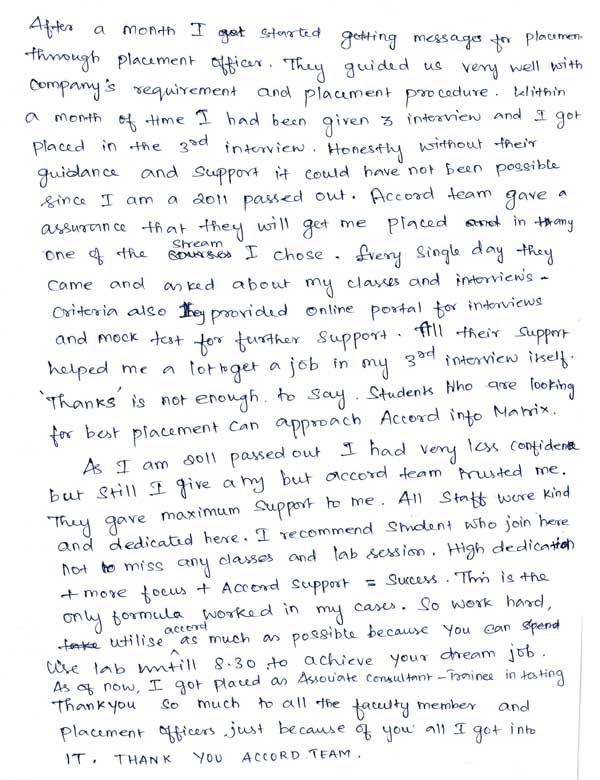 After a month I got started getting messages for placemen
through placement officer. They guided us very well with
company's requirement and placement procedure. Within
a month of time I had been given 3 interview and I got
placed in the 3rd interview. Honestly without their
guidance and support it could have not been possible
since I am a 2011 passed out. Accord team gave a
assurance that they will get me placed and in any
one of the courses stream I chose. Every single day they
came and asked about my classes and interview's -
criteria also they provided online portal for interviews
and mock test for further support. All their support
helped me a lot to get a job in my 3rd interview itself.
'Thanks' is not enough to say. Students who are looking
for best placement can approach Accord info Matrix.
As I am 2011 passed out I had very less confidence
but still I give a try but accord team trusted me.
They gave maximum support to me. All staff were kind
and dedicated here. I recommend student who join here
not to miss any classes and lab session. High dedication
+ more focus + Accord support = success. This is the
only formula worked in my cases. So work hard,
take utilise accord as much as possible because you can spend
use lab untill 8.30 to achieve your dream job.
As of now, I got placed as Associate consultant - Trainee in testing
Thankyou so much to all the faculty member and
Placement officers, just because of you all I got into
IT. THANK YOU ACCORD TEAM.